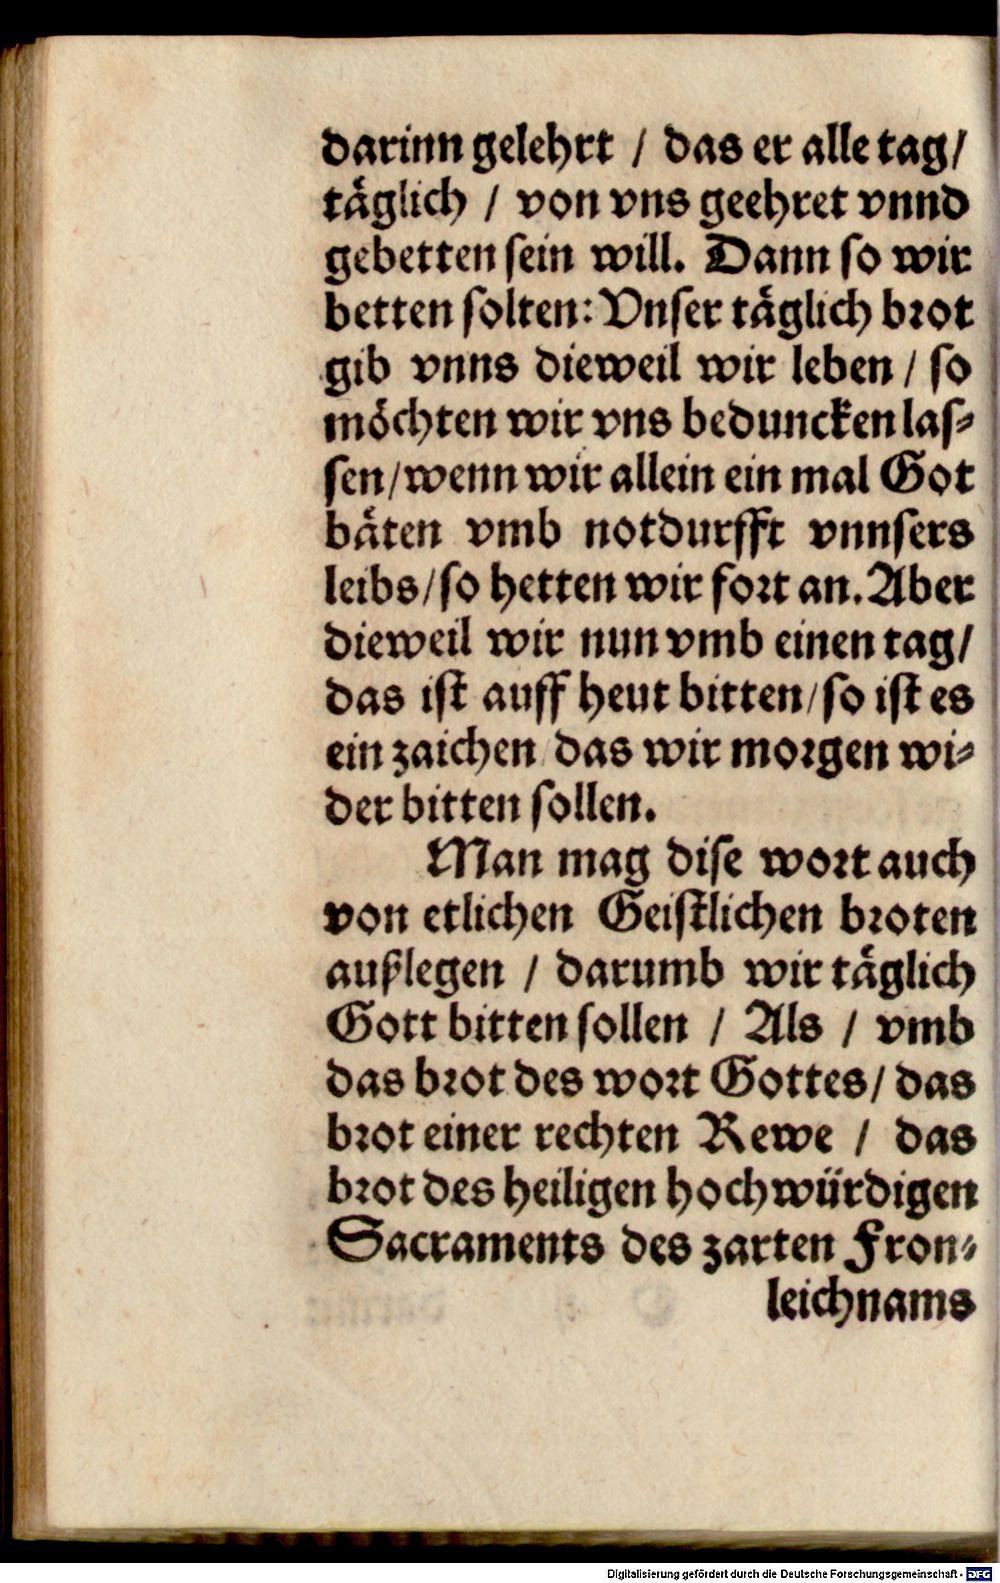 darinn gelehrt / das er alle tag /
täglich / von vns geehret vnnd
gebetten sein will. Dann so wir
betten solten: Vnser täglich brot
gib vnns dieweil wir leben / so
möchten wir vns beduncken las-
sen / wenn wir allein ein mal Got
bäten vmb notdurfft vnnsers
leibs / so hetten wir fort an. Aber
dieweil wir nun vmb einen tag /
das ist auff heut bitten / so ist es
ein zaichen das wir morgen wi-
der bitten sollen.
Man mag dise wort auch
von etlichen Geistlichen broten
außlegen / darumb wir täglich
Gott bitten sollen / Als / vmb
das brot des wort Gottes / das
brot einer rechten Rewe / das
brot des heiligen hochwürdigen
Sacraments des zarten Fron-
leichnams
Digitalisierung gefördert durch die Deutsche Forschungsgemeinschaft - DFG